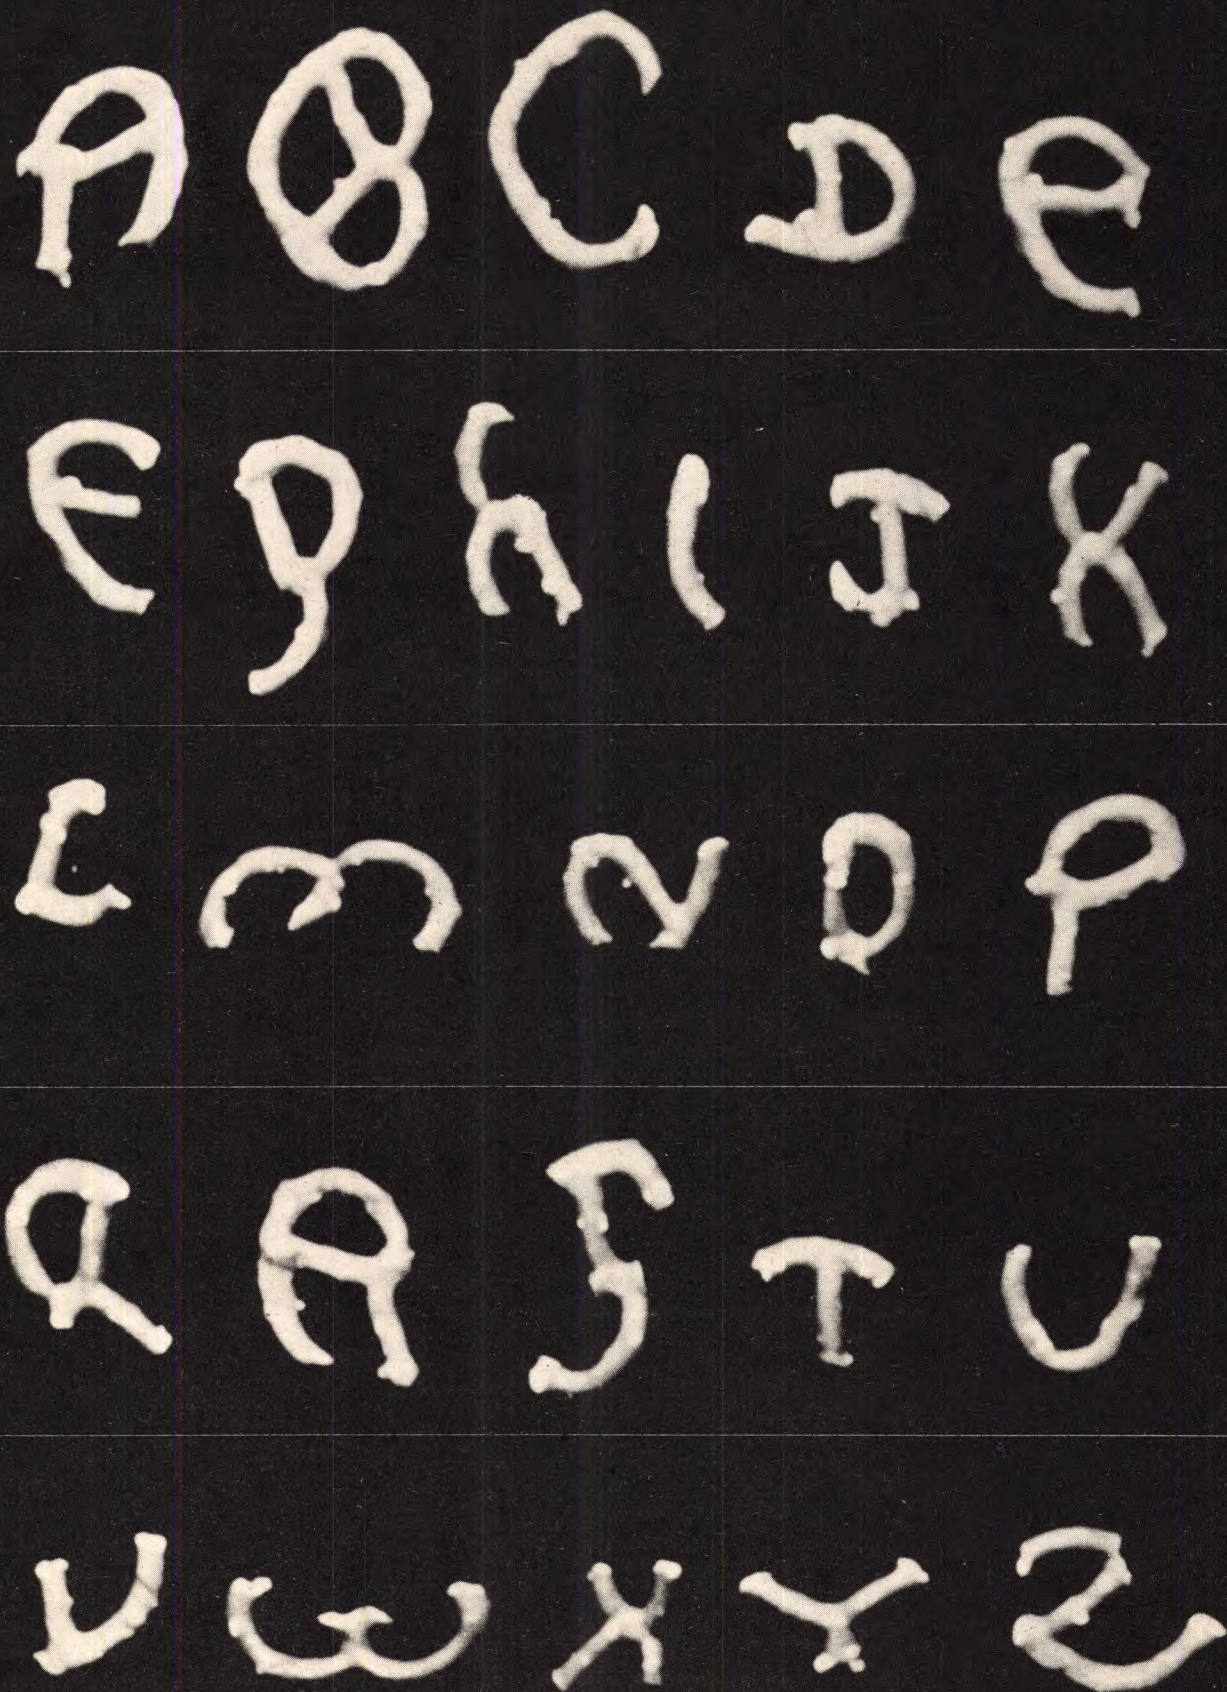 A B C D e
E g h I J K
L m N O P
Q R S T U
V W X Y Z